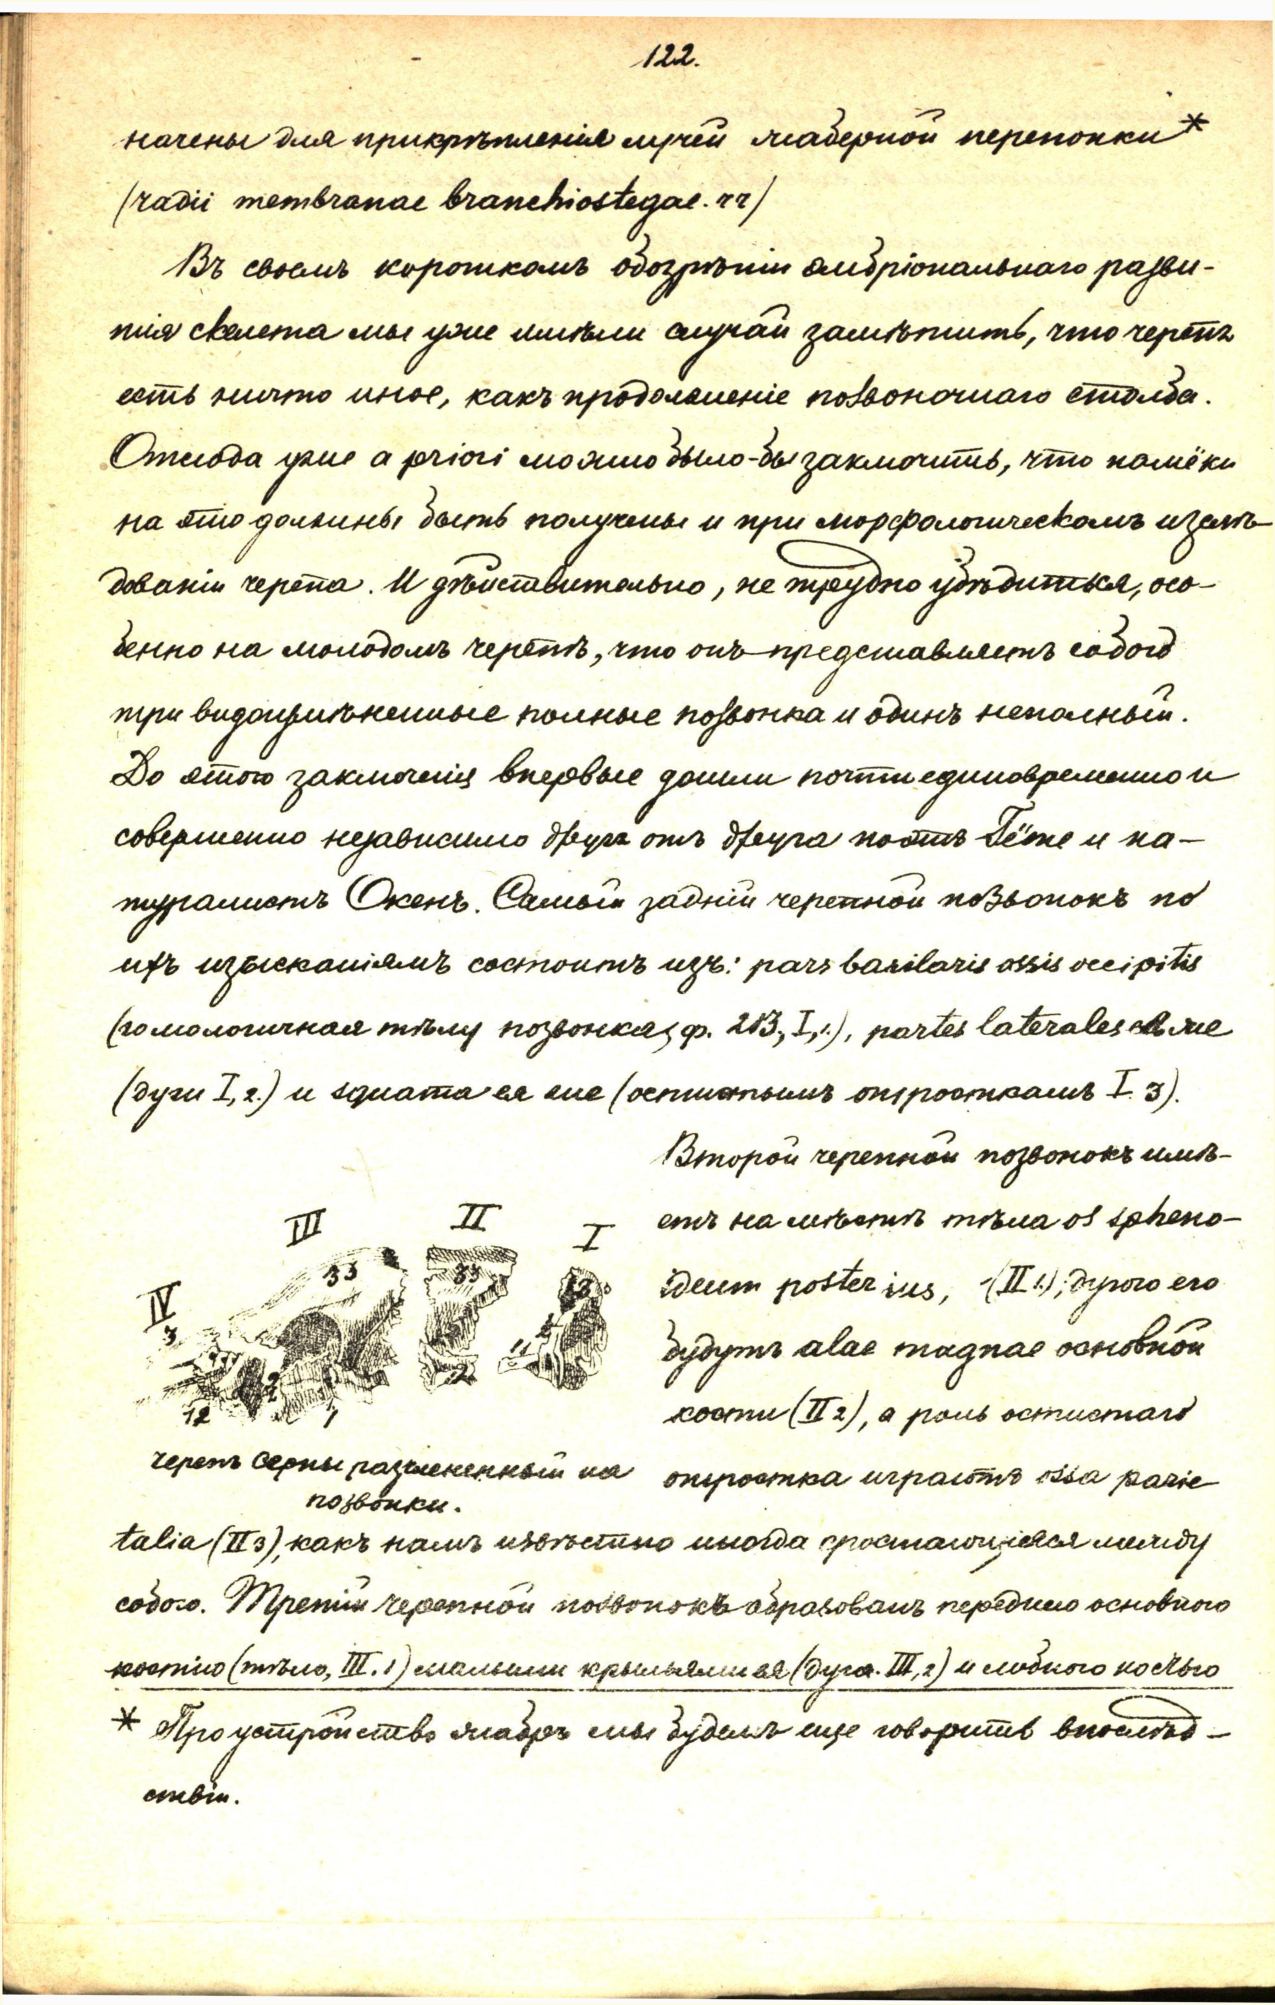 122.
начены для прикрѣпленія лучей жаберной перепонки *
(radii membranae branchiostegae. rr)
Въ своемъ короткомъ обозрѣніи эмбріональнаго разви-
тія скелета мы уже имѣли случай замѣтить, что черепъ
есть ничто иное, какъ продолженіе позвоночнаго столба.
Отсюда уже a priori можно было-бы заключить, что намёки
на это должны быть получены и при морфологическомъ изслѣ-
дованіи черепа. И дѣйствительно, не трудно убѣдиться, осо-
бенно на молодомъ черепѣ, что онъ представляетъ собою
три видоизмѣненные полные позвонка и одинъ неполный.
До этого заключенія впервые дошли почти единовременно и
совершенно независимо другъ отъ друга поэтъ Гёте и на-
туралистъ Окенъ. Самый задній черепной позвонокъ по
ихъ изысканіямъ состоитъ изъ: pars basilaris ossis occipitis
(гомологичная тѣлу позвонка, ф. 213, I, 1.), partes laterales ея же
(дуги I, 2.) и squama ея же (остистымъ отросткамъ I. 3).
Второй черепной позвонокъ имѣ-
етъ на мѣстѣ тѣла os spheno-
ideum posterius, (II 1.); дугою его
будутъ alae magnae основной
кости (II 2), а роль остистаго
отростка играютъ ossa parie
III
II
I
IV
33
33
13
3
2
2
11
12
1
2
черепъ Серны разчлененный на
позвонки.
talia (II 3), какъ намъ извѣстно иногда сростающіяся между
собою. Третій черепной позвонокъ образованъ переднею основною
костью (тѣло, III. 1) малыми крыльями ея (дуга. III, 2) и лобною костью
* Про устройство жабръ мы будемъ еще говорить впослѣд-
ствіи.